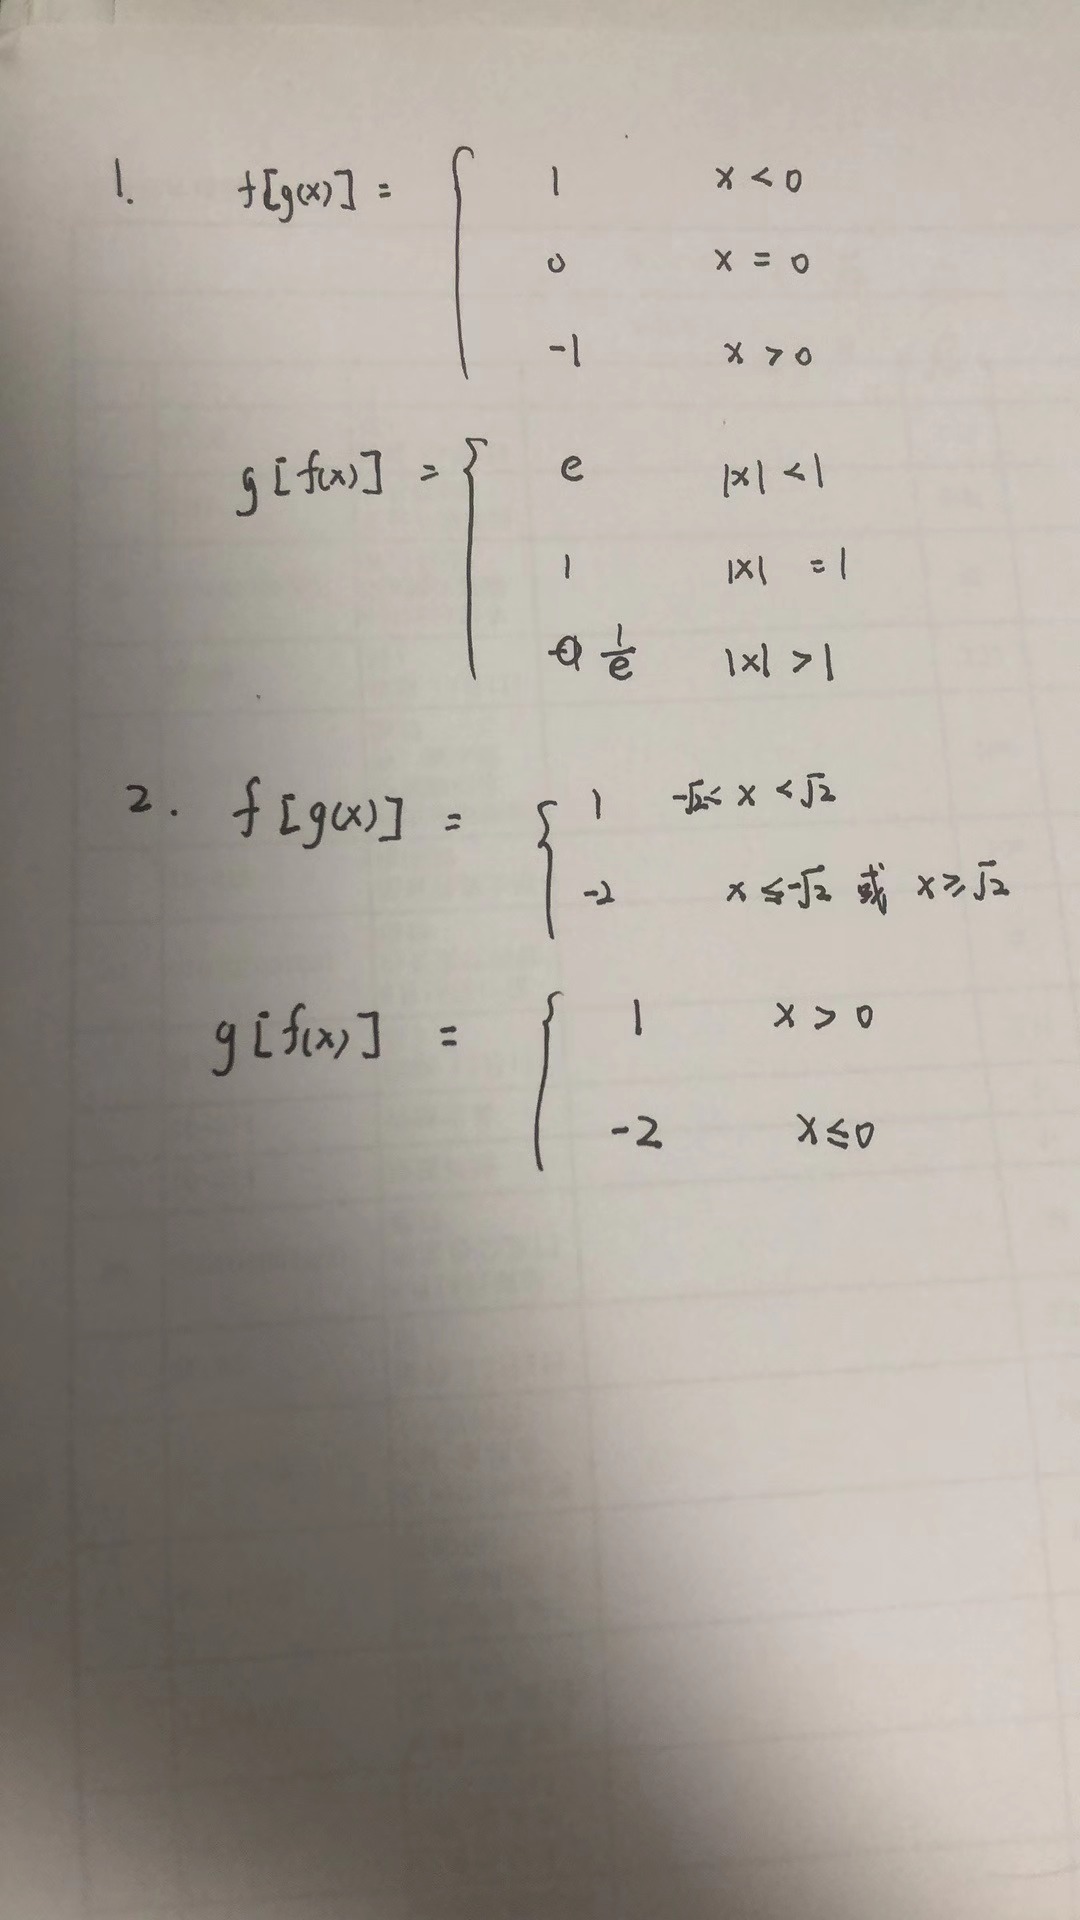 1. f[g(x)] = { 1 x < 0
0 x = 0
-1 x > 0
g[f(x)] = { e |x| < 1
1 |x| = 1
1/e |x| > 1
2. f[g(x)] = { 1 -√2 < x < √2
-2 x ≤ -√2 或 x ≥ √2
g[f(x)] = { 1 x > 0
-2 x ≤ 0